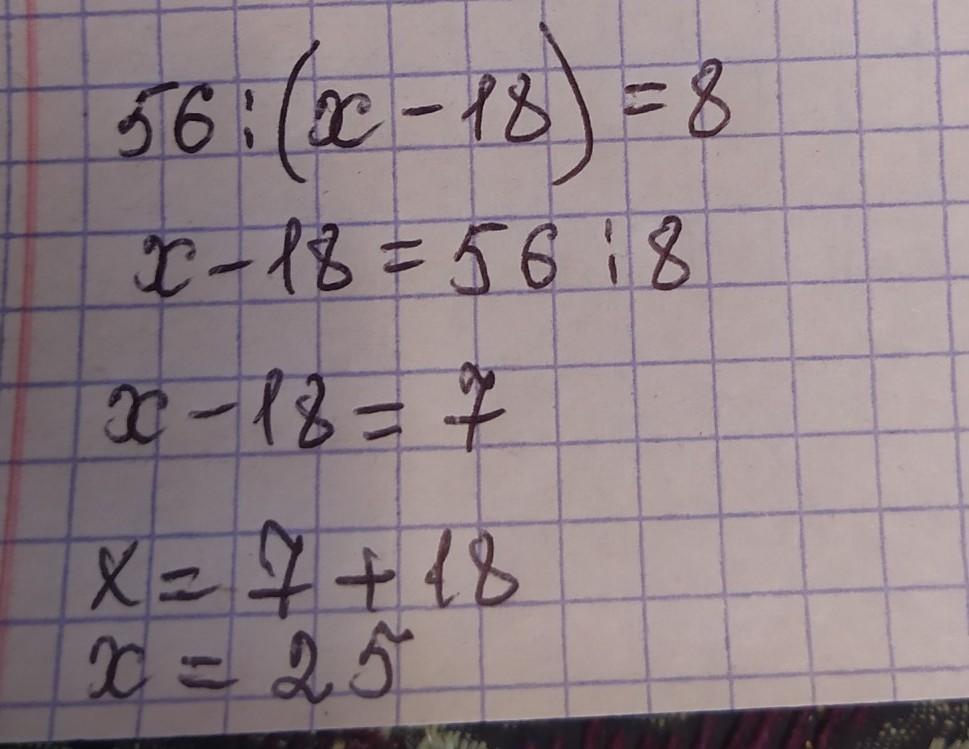 56:(x-18)=8
x-18=56:8
x-18=7
x=7+18
x=25